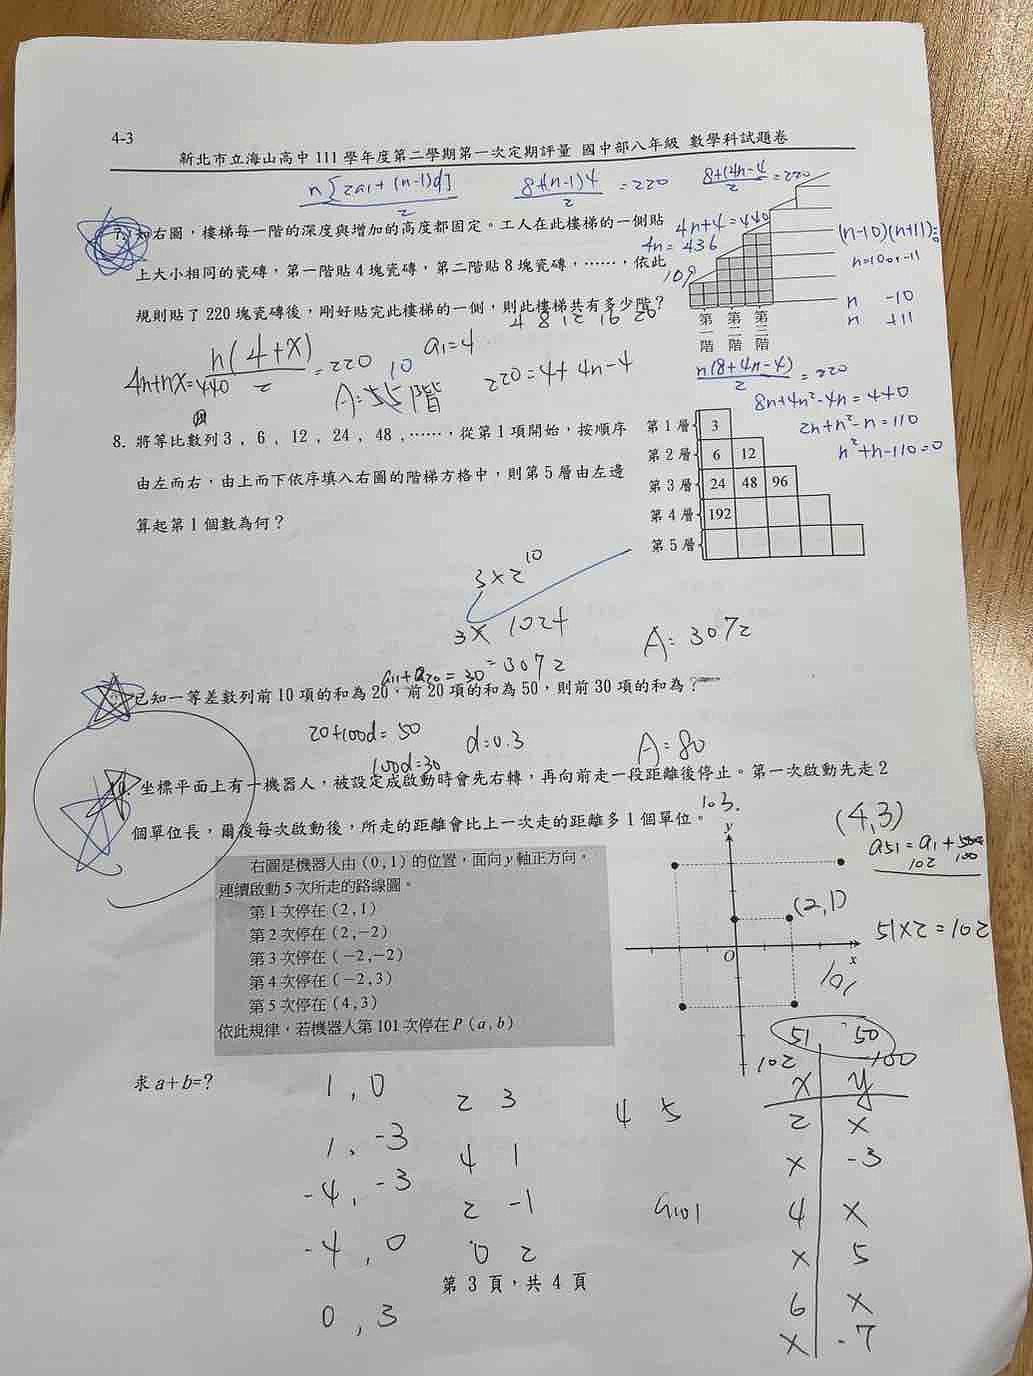 4-3
新北市立海山高中 111 學年度第二學期第一次定期評量 國中部八年級 數學科試題卷
n[2a₁+(n-1)d]/2
8+(n-1)4/2 =220
8+(4n-4/2 =220
7. 如右圖,樓梯每一階的深度與增加的高度都固定。工人在此樓梯的一側貼
4n+4=440
4n=436
109
(n-10)(n+11)=0
n=10or-11
n -10
n +11
上大小相同的瓷磚,第一階貼 4 塊瓷磚,第二階貼 8 塊瓷磚,……,依此
規則貼了 220 塊瓷磚後,剛好貼完此樓梯的一側,則此樓梯共有多少階?
第一階 第二階 第三階
4 8 12 16 20
n(4+x)/2 =220
4n+nx=440
a₁=4
10
A:55階
220=4+4n-4
n(8+4n-4)/2 =220
8n+4n²-4n=440
2n+n²-n=110
n²+n-110=0
8. 將等比數列 3,6,12,24,48,……,從第 1 項開始,按順序
由左而右,由上而下依序填入右圖的階梯方格中,則第 5 層由左邊
算起第 1 個數為何?
第 1 層 3
第 2 層 6 12
第 3 層 24 48 96
第 4 層 192
第 5 層
3×2¹⁰
3× 1024
=3072
A: 3072
a₁₁+a₂₀=30
已知一等差數列前 10 項的和為 20,前 20 項的和為 50,則前 30 項的和為?
20+100d=50
100d=30
d=0.3
A=80
10. 坐標平面上有一機器人,被設定成啟動時會先右轉,再向前走一段距離後停止。第一次啟動先走 2
個單位長,爾後每次啟動後,所走的距離會比上一次走的距離多 1 個單位。
103.
(4,3)
a51=a₁+
102 100
51×2=102
右圖是機器人由(0,1)的位置,面向 y 軸正方向,
連續啟動 5 次所走的路線圖。
第 1 次停在(2,1)
第 2 次停在(2,-2)
第 3 次停在(-2,-2)
第 4 次停在(-2,3)
第 5 次停在(4,3)
依此規律,若機器人第 101 次停在 P(a,b)
y
(2,1)
O
x
101
求 a+b=?
1,0
1,-3
-4,-3
-4,0
0,3
2 3
4 1
2 -1
0 2
4 5
a101
51 50
102 -100
x y
2 x
x -3
4 x
x 5
6 x
x -7
第 3 頁,共 4 頁